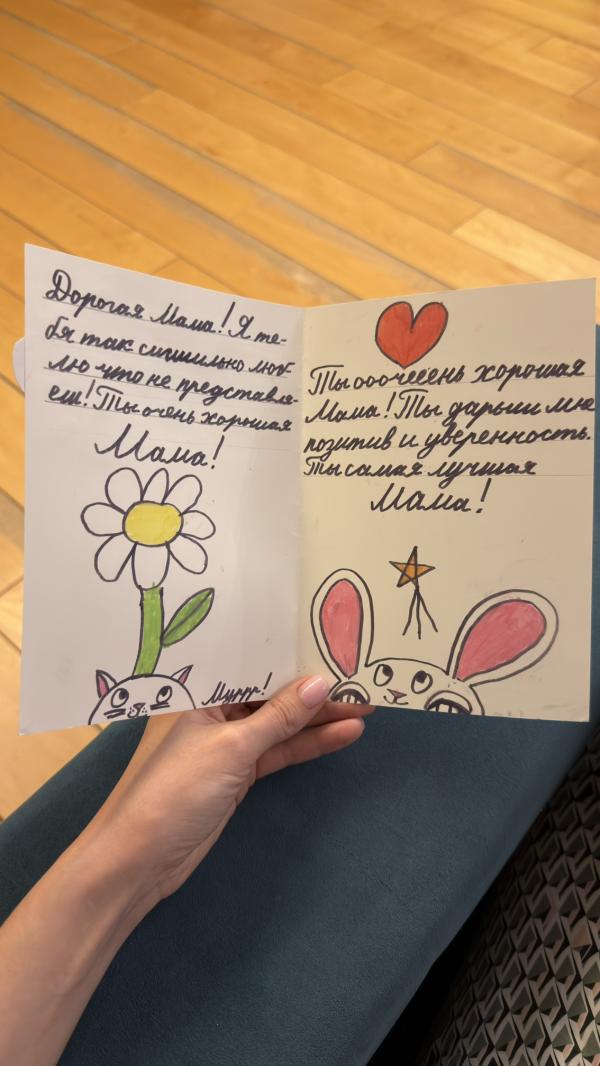 Дорогая Мама! Я те-
бя так сишильно люб-
лю что не представля-
еш! Ты очень хорошая
Мама!
Муррр!
Ты ооочееень хорошая
Мама! Ты даришь мне
позитив и уверенность.
Ты самая лучшая
Мама!